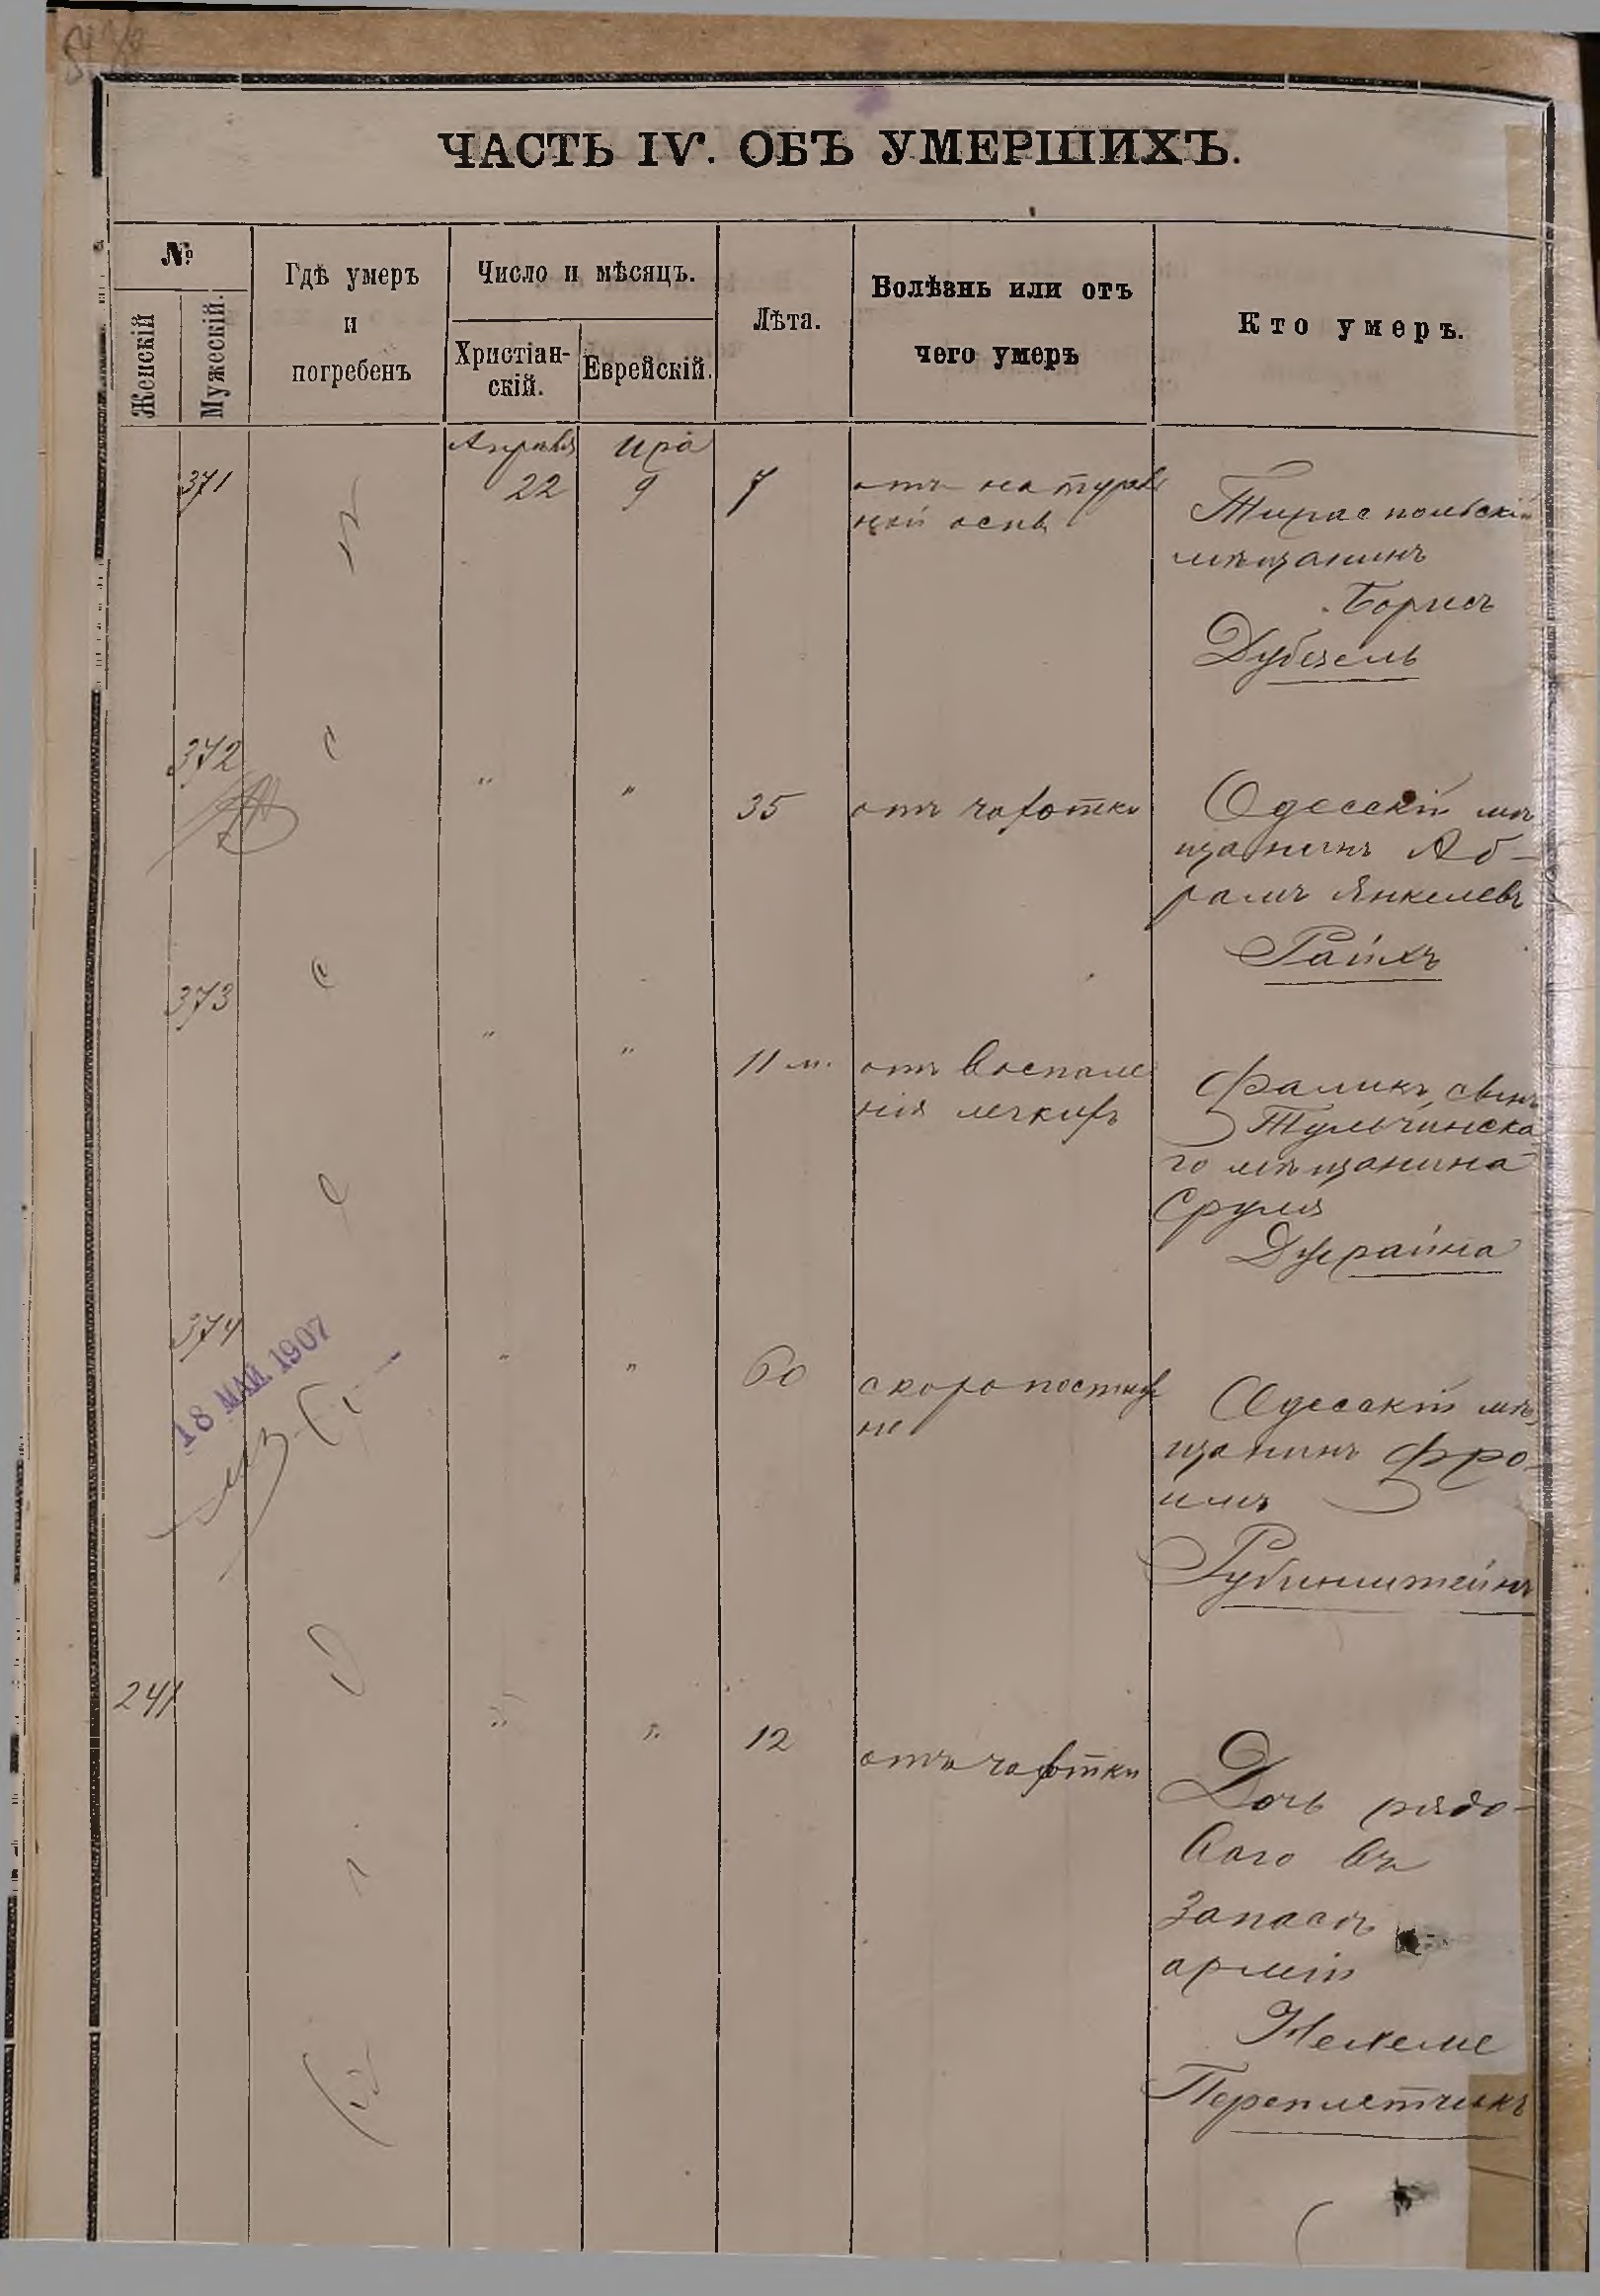 ЧАСТЬ IV. ОБЪ УМЕРШИХЪ.
№
Женскій
Мужескій.
Гдѣ умеръ
и
погребенъ
Число и мѣсяцъ.
Христіан-
скій.
Еврейскій.
Лѣта.
Болѣзнь или отъ
чего умеръ
Кто умеръ.
Апрѣля Ира
371 22 9 7
отъ натураль
ной оспы
Тираспольскій
мѣщанинъ
Борисъ
Дубезель
372 С " " 35 отъ чахотки
Одесскій мѣ
щанинъ Аб-
рамъ Янкелевъ
Райхъ
373 " " 11 м. отъ воспале
нія легкихъ
Фаликъ, сынъ
Тульчинска
го мѣщанина
Сруля
Дубрайна
374 " " 60 скоропостиж
но
18 МАЙ 1907
Одесскій мѣ
щанинъ Фро-
имъ
Рубинштейнъ
241 " " 12 отъ чахотки
Дочь рядо-
вого въ
запасѣ
арміи
Нехеме
Переплетчикъ